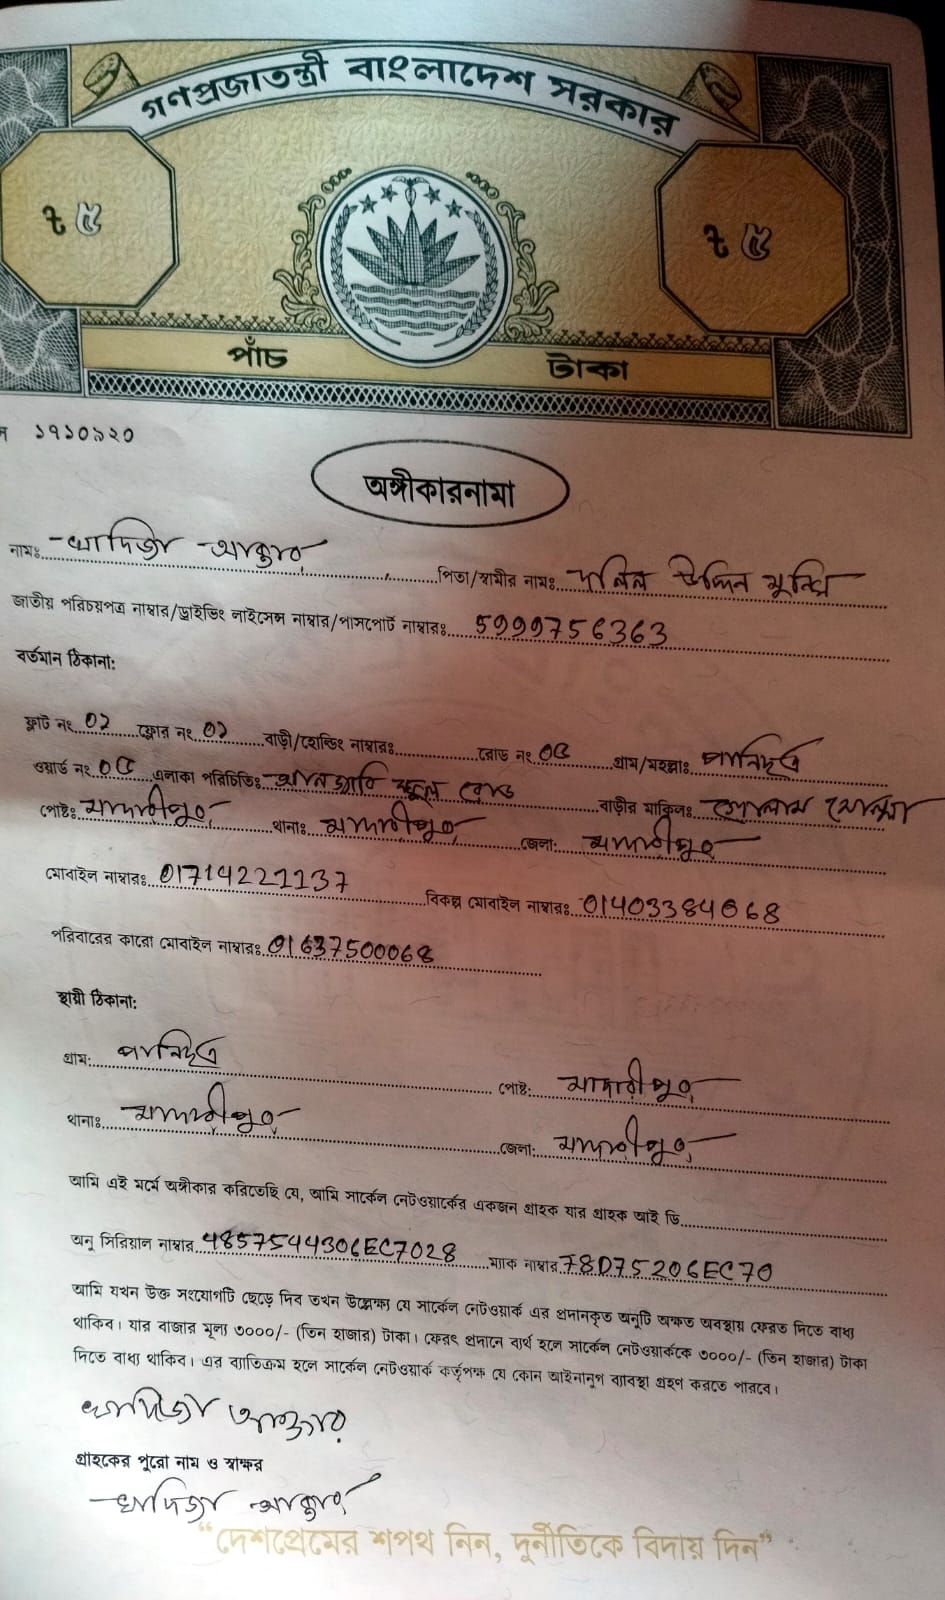 গণপ্রজাতন্ত্রী বাংলাদেশ সরকার
৳ ৫ ৳ ৫
পাঁচ টাকা
১৭১০৯২০
অঙ্গীকারনামা
নামঃ খাদিজা আক্তার পিতা/স্বামীর নামঃ দলিল উদ্দিন মুন্সি
জাতীয় পরিচয়পত্র নাম্বার/ড্রাইভিং লাইসেন্স নাম্বার/পাসপোর্ট নাম্বারঃ 5999756363
বর্তমান ঠিকানা:
ফ্লাট নং 02 ফ্লোর নং 02 বাড়ী/হোল্ডিং নাম্বারঃ রোড নং 0৫ গ্রাম/মহল্লাঃ পানিছত্র
ওয়ার্ড নং 0৫ এলাকা পরিচিতিঃ স্কুল রোড বাড়ীর মালিকঃ গোলাম মোল্লা
পোষ্টঃ মাদারীপুর থানাঃ মাদারীপুর জেলা: মাদারীপুর
মোবাইল নাম্বারঃ 01714221137 বিকল্প মোবাইল নাম্বারঃ 01403384068
পরিবারের কারো মোবাইল নাম্বারঃ 01637500068
স্থায়ী ঠিকানা:
গ্রাম: পানিছত্র পোষ্ট: মাদারীপুর
থানাঃ মাদারীপুর জেলা: মাদারীপুর
আমি এই মর্মে অঙ্গীকার করিতেছি যে, আমি সার্কেল নেটওয়ার্কের একজন গ্রাহক যার গ্রাহক আই ডি
অনু সিরিয়াল নাম্বার 4857544306EC7028 ম্যাক নাম্বার 78D75206EC70
আমি যখন উক্ত সংযোগটি ছেড়ে দিব তখন উল্লেক্ষ্য যে সার্কেল নেটওয়ার্ক এর প্রদানকৃত অনুটি অক্ষত অবস্থায় ফেরত দিতে বাধ্য
থাকিব। যার বাজার মূল্য ৩০০০/- (তিন হাজার) টাকা। ফেরৎ প্রদানে ব্যর্থ হলে সার্কেল নেটওয়ার্ককে ৩০০০/- (তিন হাজার) টাকা
দিতে বাধ্য থাকিব। এর ব্যাতিক্রম হলে সার্কেল নেটওয়ার্ক কর্তৃপক্ষ যে কোন আইনানুগ ব্যাবস্থা গ্রহণ করতে পারবে।
খাদিজা আক্তার
গ্রাহকের পুরো নাম ও স্বাক্ষর
খাদিজা আক্তার
“দেশপ্রেমের শপথ নিন, দুর্নীতিকে বিদায় দিন”